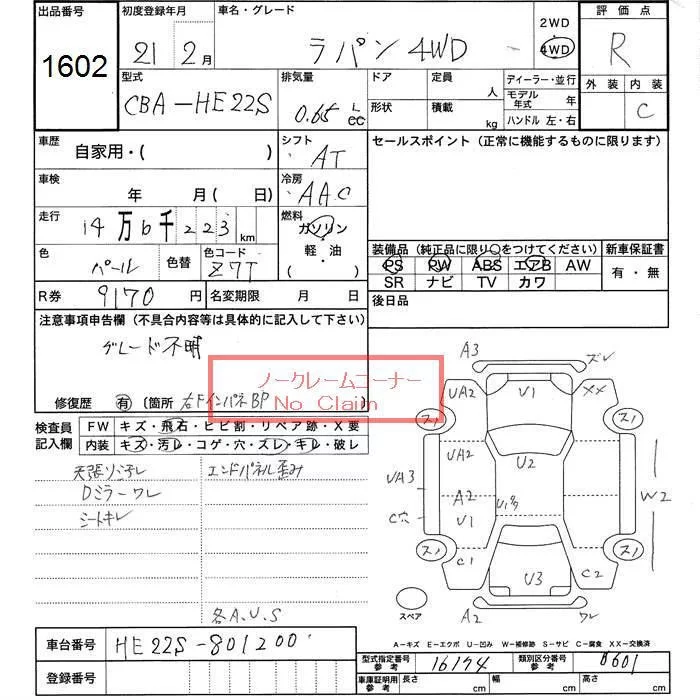 出品番号 初度登録年月 車名・グレード 2WD 評価点
1602 21年 2月 ラパン 4WD 4WD R
型式 排気量 ドア 定員 人 ディーラー・並行 外装 内装
CBA-HE22S 0.65 L cc 形状 積載 kg モデル年式 年 C
ハンドル 左・右
車歴 自家用・( ) シフト AT セールスポイント(正常に機能するものに限ります)
車検 年 月(日) 冷房 AAC
走行 14万6千223km 燃料 ガソリン・軽・油( )
色 パール 色替 色コード Z7T
装備品(純正品に限り○をつけてください) 新車保証書
PS PW ABS エアB AW 有・無
SR ナビ TV カワ
R券 9170円 名変期限 月 日 後日品
注意事項申告欄(不具合内容等は具体的に記入して下さい)
グレード不明
ノークレームコーナー
No Claim
修復歴 有 〔箇所 右FインパネBP
検査員記入欄 FW キズ・飛石・ヒビ割・リペア跡・X要
内装 キズ・汚レ・コゲ・穴・スレ・キレ・破レ
天張リ汚レ エンドパネル歪み
Dミラーワレ
シートキレ
各A.U.S
A3 ズレ
UA2 U1 XX
スノ スノ
UA2 U2
UA3 A2 W2
C穴 U1
スノ スノ
C1 U3 C2
スペア A2 ワレ
A-キズ E-エクボ U-凹み W-補修跡 S-サビ C-腐食 XX-交換済
車台番号 HE22S-801200
登録番号
型式指定番号 参考 16174 類別区分番号 参考 0601
車庫証明用 参考 長さ cm 幅 cm 高さ cm